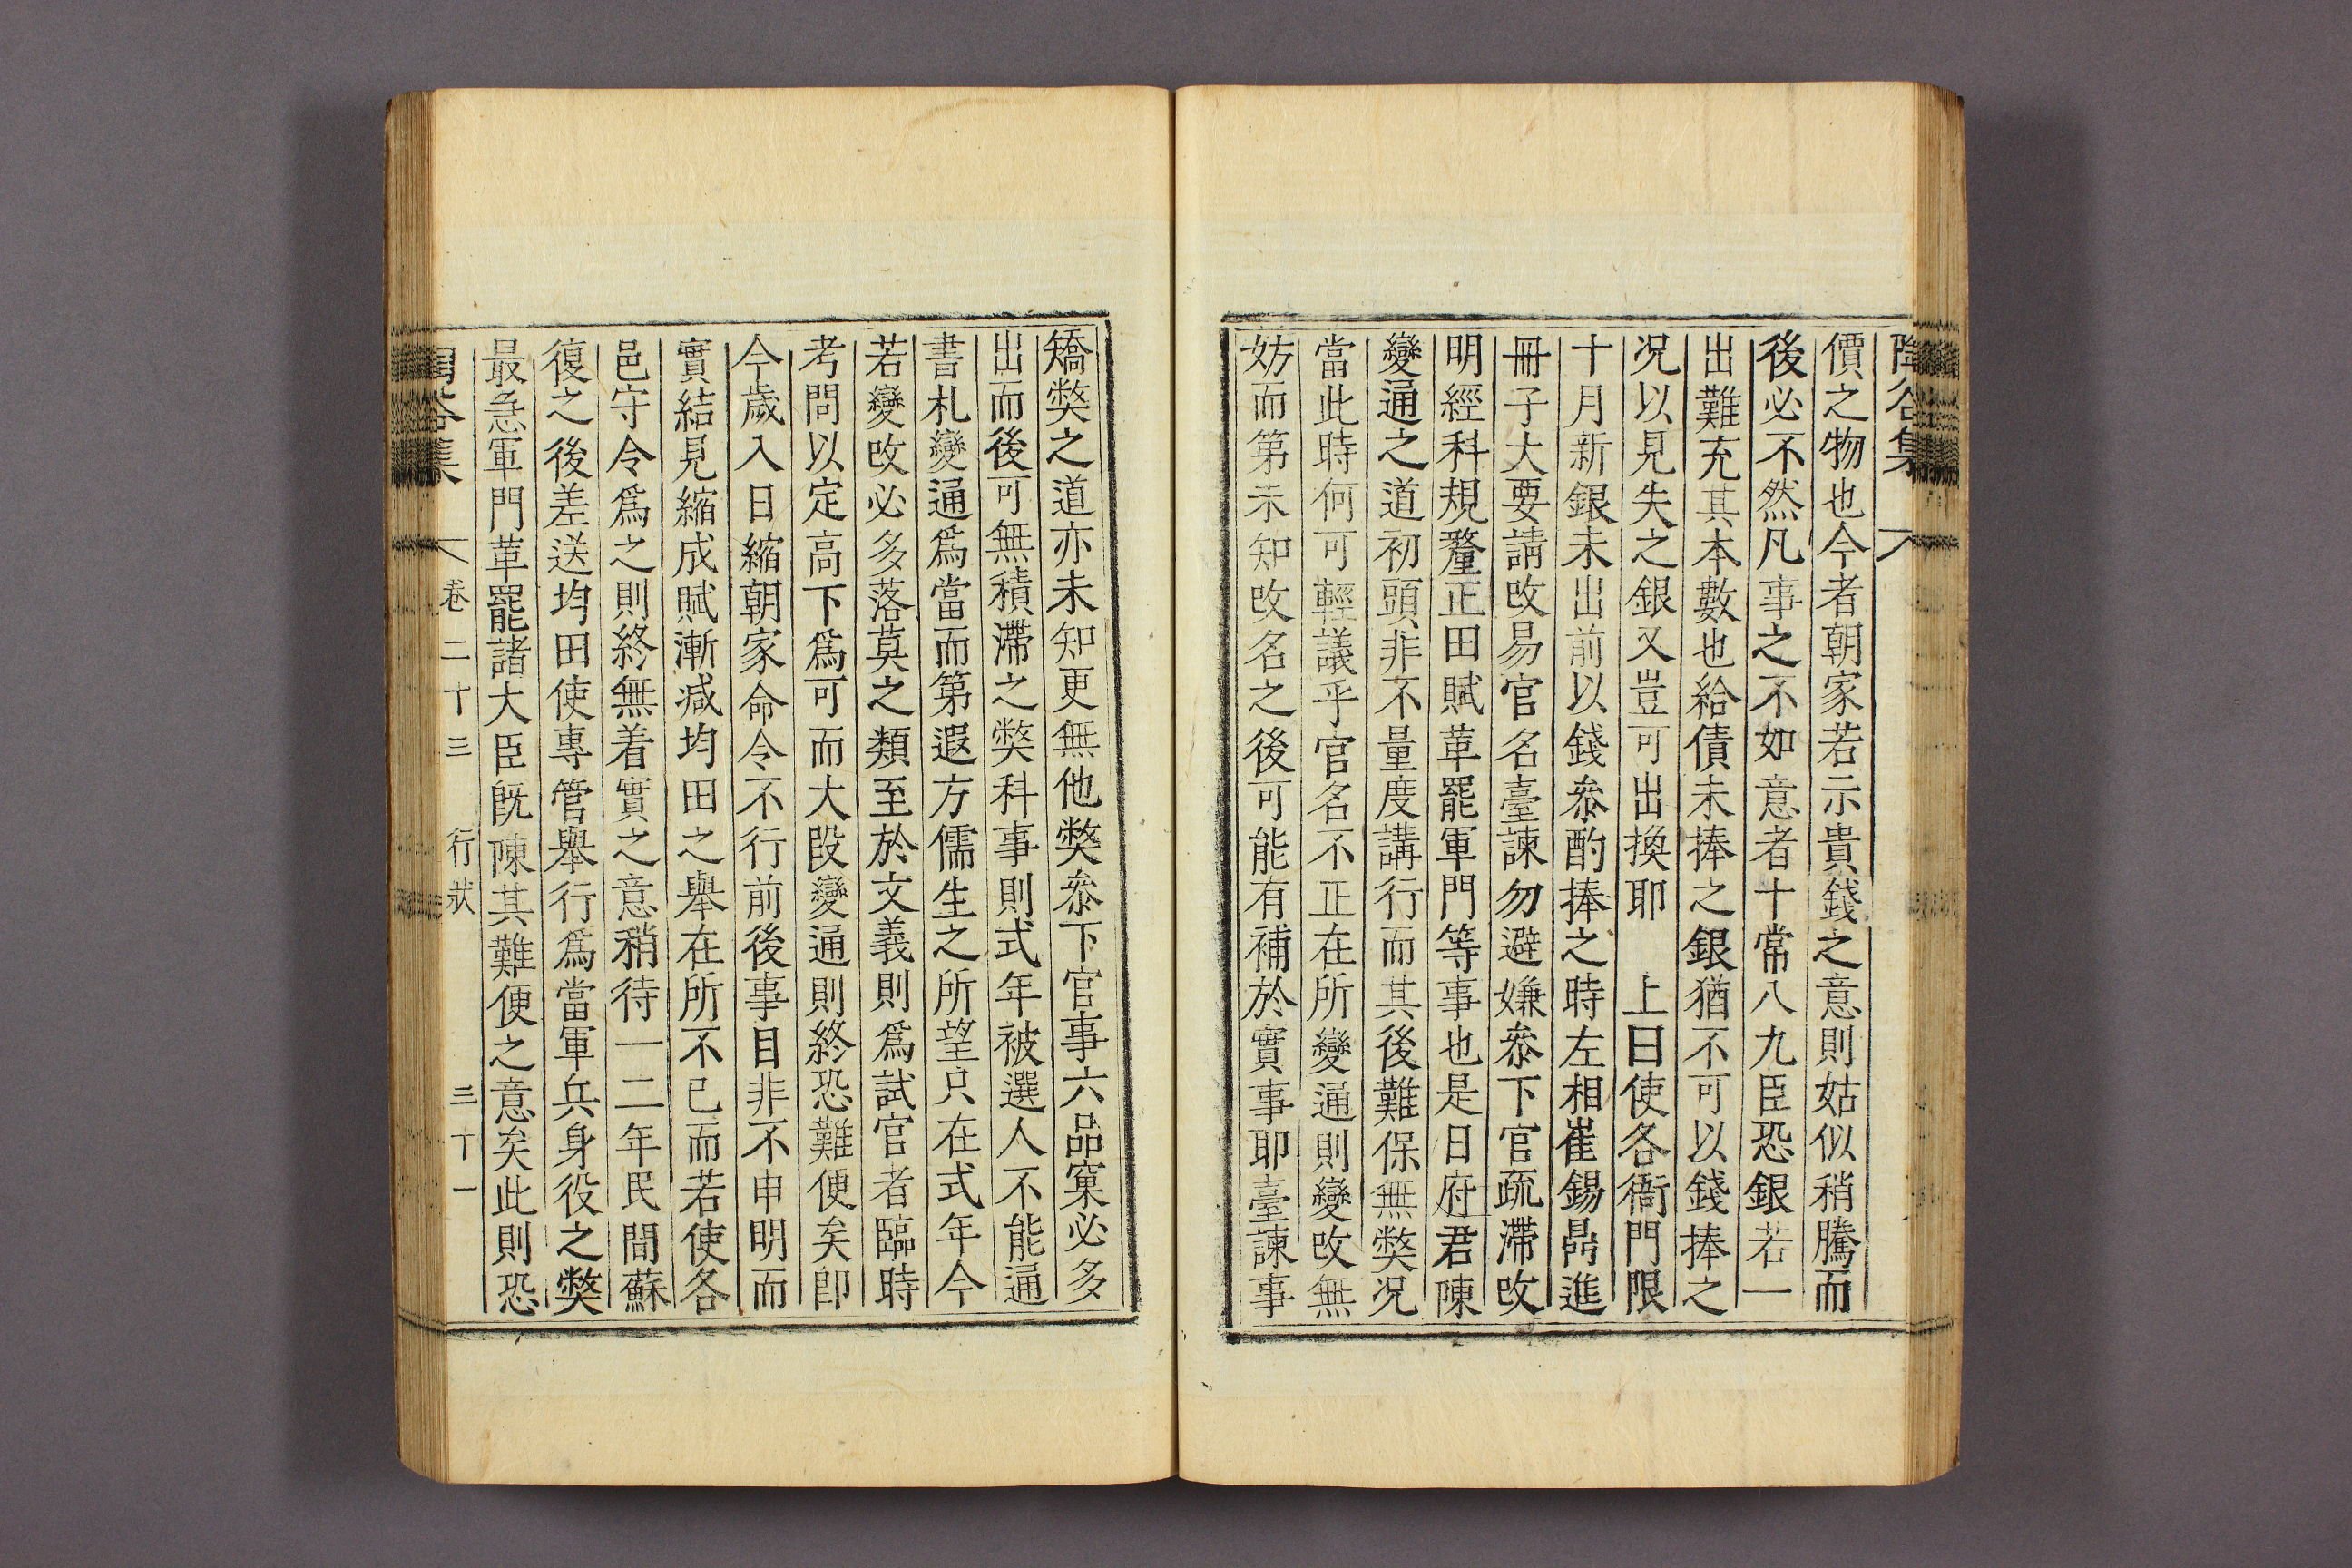 陶谷集
價之物也今者朝家若示貴錢之意則姑似稍騰而
後必不然凡事之不如意者十常八九臣恐銀若一
出難充其本數也給債未捧之銀猶不可以錢捧之
况以見失之銀又豈可出換耶　上曰使各衙門限
十月新銀未出前以錢叅酌捧之時左相崔錫鼎進
冊子大要請改易官名臺諫勿避嫌叅下官疏滯改
明經科規釐正田賦革罷軍門等事也是日府君陳
變通之道初頭非不量度講行而其後難保無獘况
當此時何可輕議乎官名不正在所變通則變改無
妨而第未知改名之後可能有補於實事耶臺諫事
矯獘之道亦未知更無他獘叅下官事六品窠必多
出而後可無積滯之獘科事則式年被選人不能通
書札變通爲當而第遐方儒生之所望只在式年今
若變改必多落莫之類至於文義則爲試官者臨時
考問以定高下爲可而大段變通則終恐難便矣卽
今歲入日縮朝家命令不行前後事目非不申明而
實結見縮成賦漸减均田之擧在所不已而若使各
邑守令爲之則終無着實之意稍待一二年民間蘇
復之後差送均田使專管擧行爲當軍兵身役之獘
最急軍門革罷諸大臣旣陳其難便之意矣此則恐
陶谷集　卷二十三　行狀　三十一